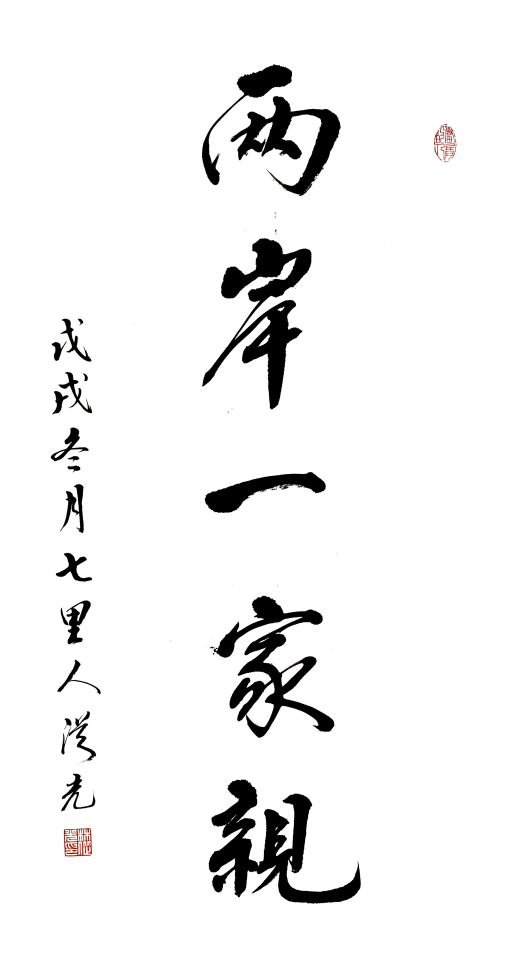 两岸一家親
戊戌冬月七里人漢光